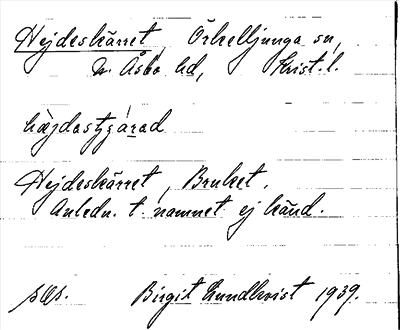 Hejdeskärret, Örkelljunga sn,
N. Åsbo hd, Krist. l.
Hejdeskärret, Bruket.
Anledn. t. namnet ej känd.
Birgit Lundkvist 1939.